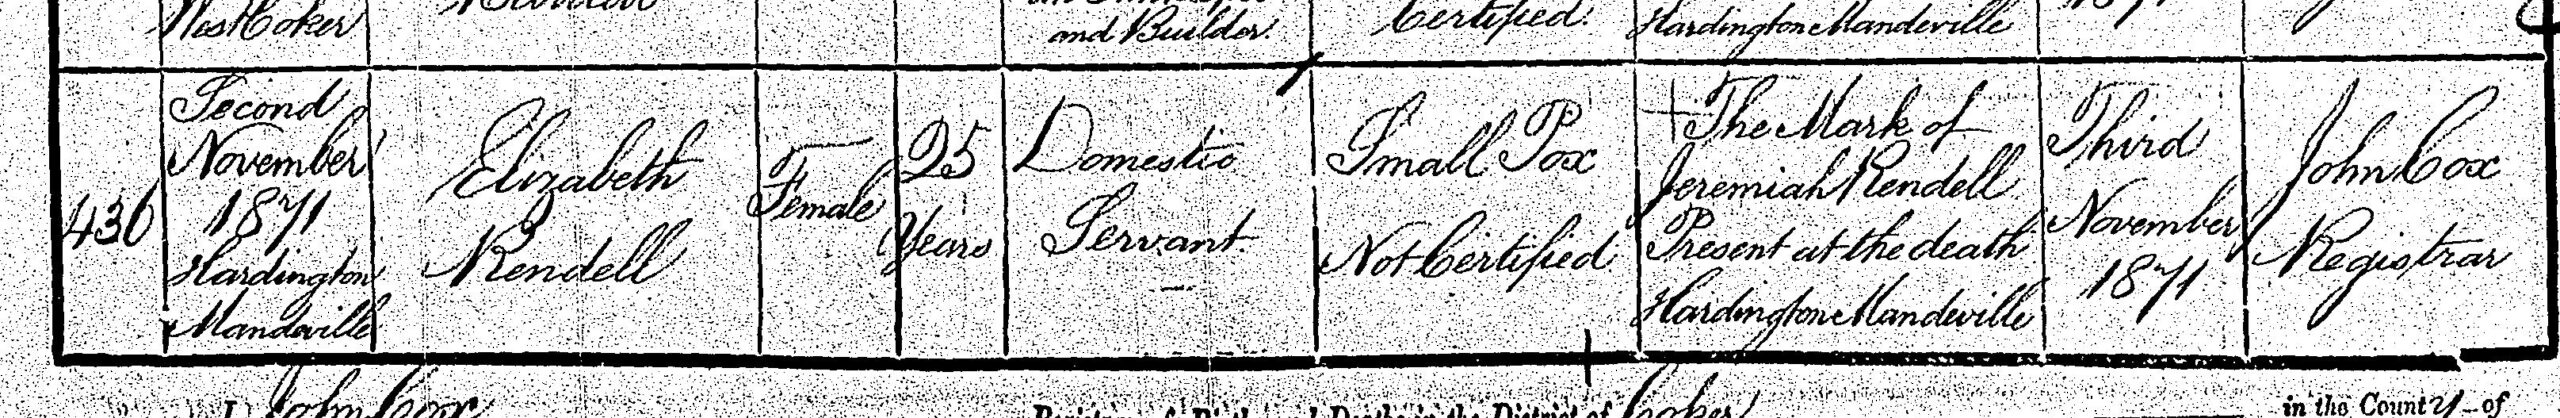 West Coker
and Builder
Certified
Hardington Mandeville
1871
436
Second
November
1871
Hardington
Mandeville
Elizabeth
Rendell
Female
25
Years
Domestic
Servant
Small Pox
Not Certified
+ The Mark of
Jeremiah Rendell
Present at the death
Hardington Mandeville
Third
November
1871
John Cox
Registrar
John Cox
Registrar of Births and Deaths in the District of Coker
in the County of